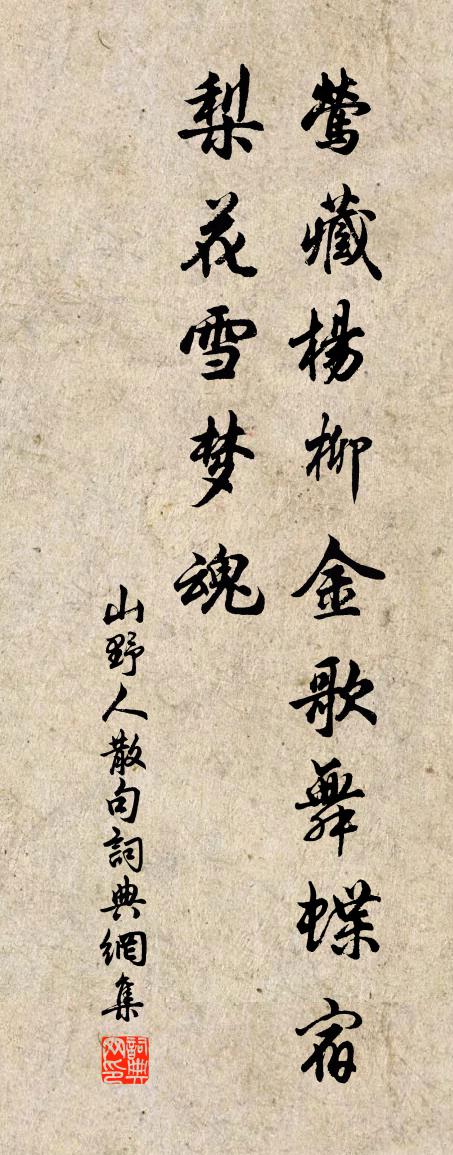 莺藏楊柳金歌舞蝶宿
梨花雪梦魂
山野人散句詞典網集
詞典网印